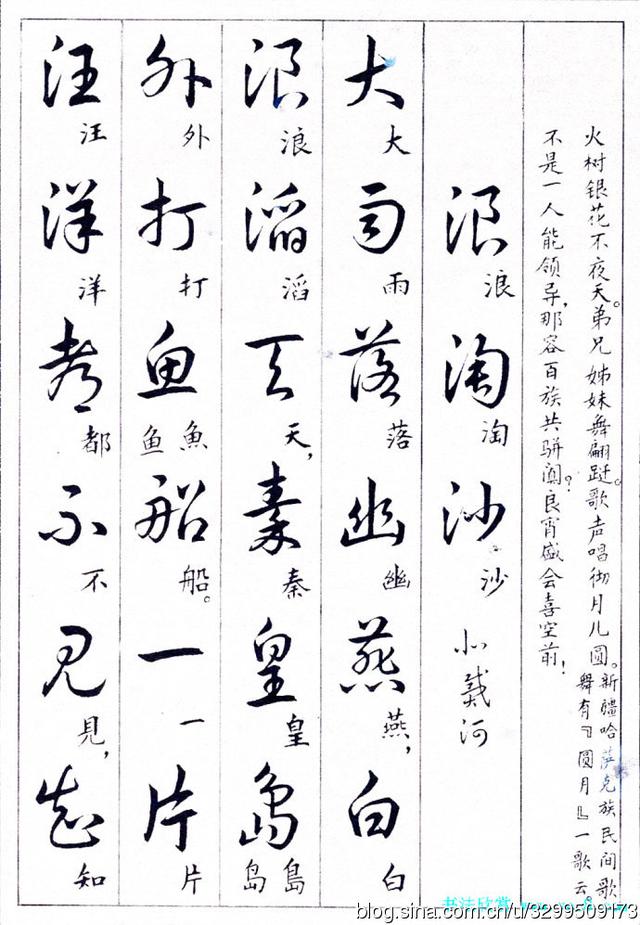 火树银花不夜天。弟兄姊妹舞翩跹。歌声唱彻月儿圆。
新疆哈萨克族民间歌
舞有『圆月』一歌云
不是一人能领导,那容百族共骈阗?良宵盛会喜空前!
浪淘沙 北戴河
浪淘沙
大雨落幽燕白
大雨落幽燕,白
浪滔天秦皇岛
浪滔天,秦皇島岛
外打鱼船一片
外打魚鱼船。一片
汪洋都不见知
汪洋都不見,知
书法欣赏
blog.sina.com.cn/u/3299509173